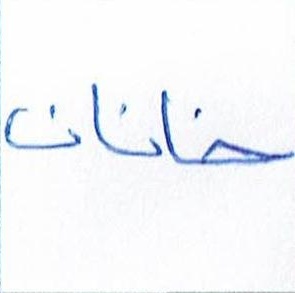 خانات